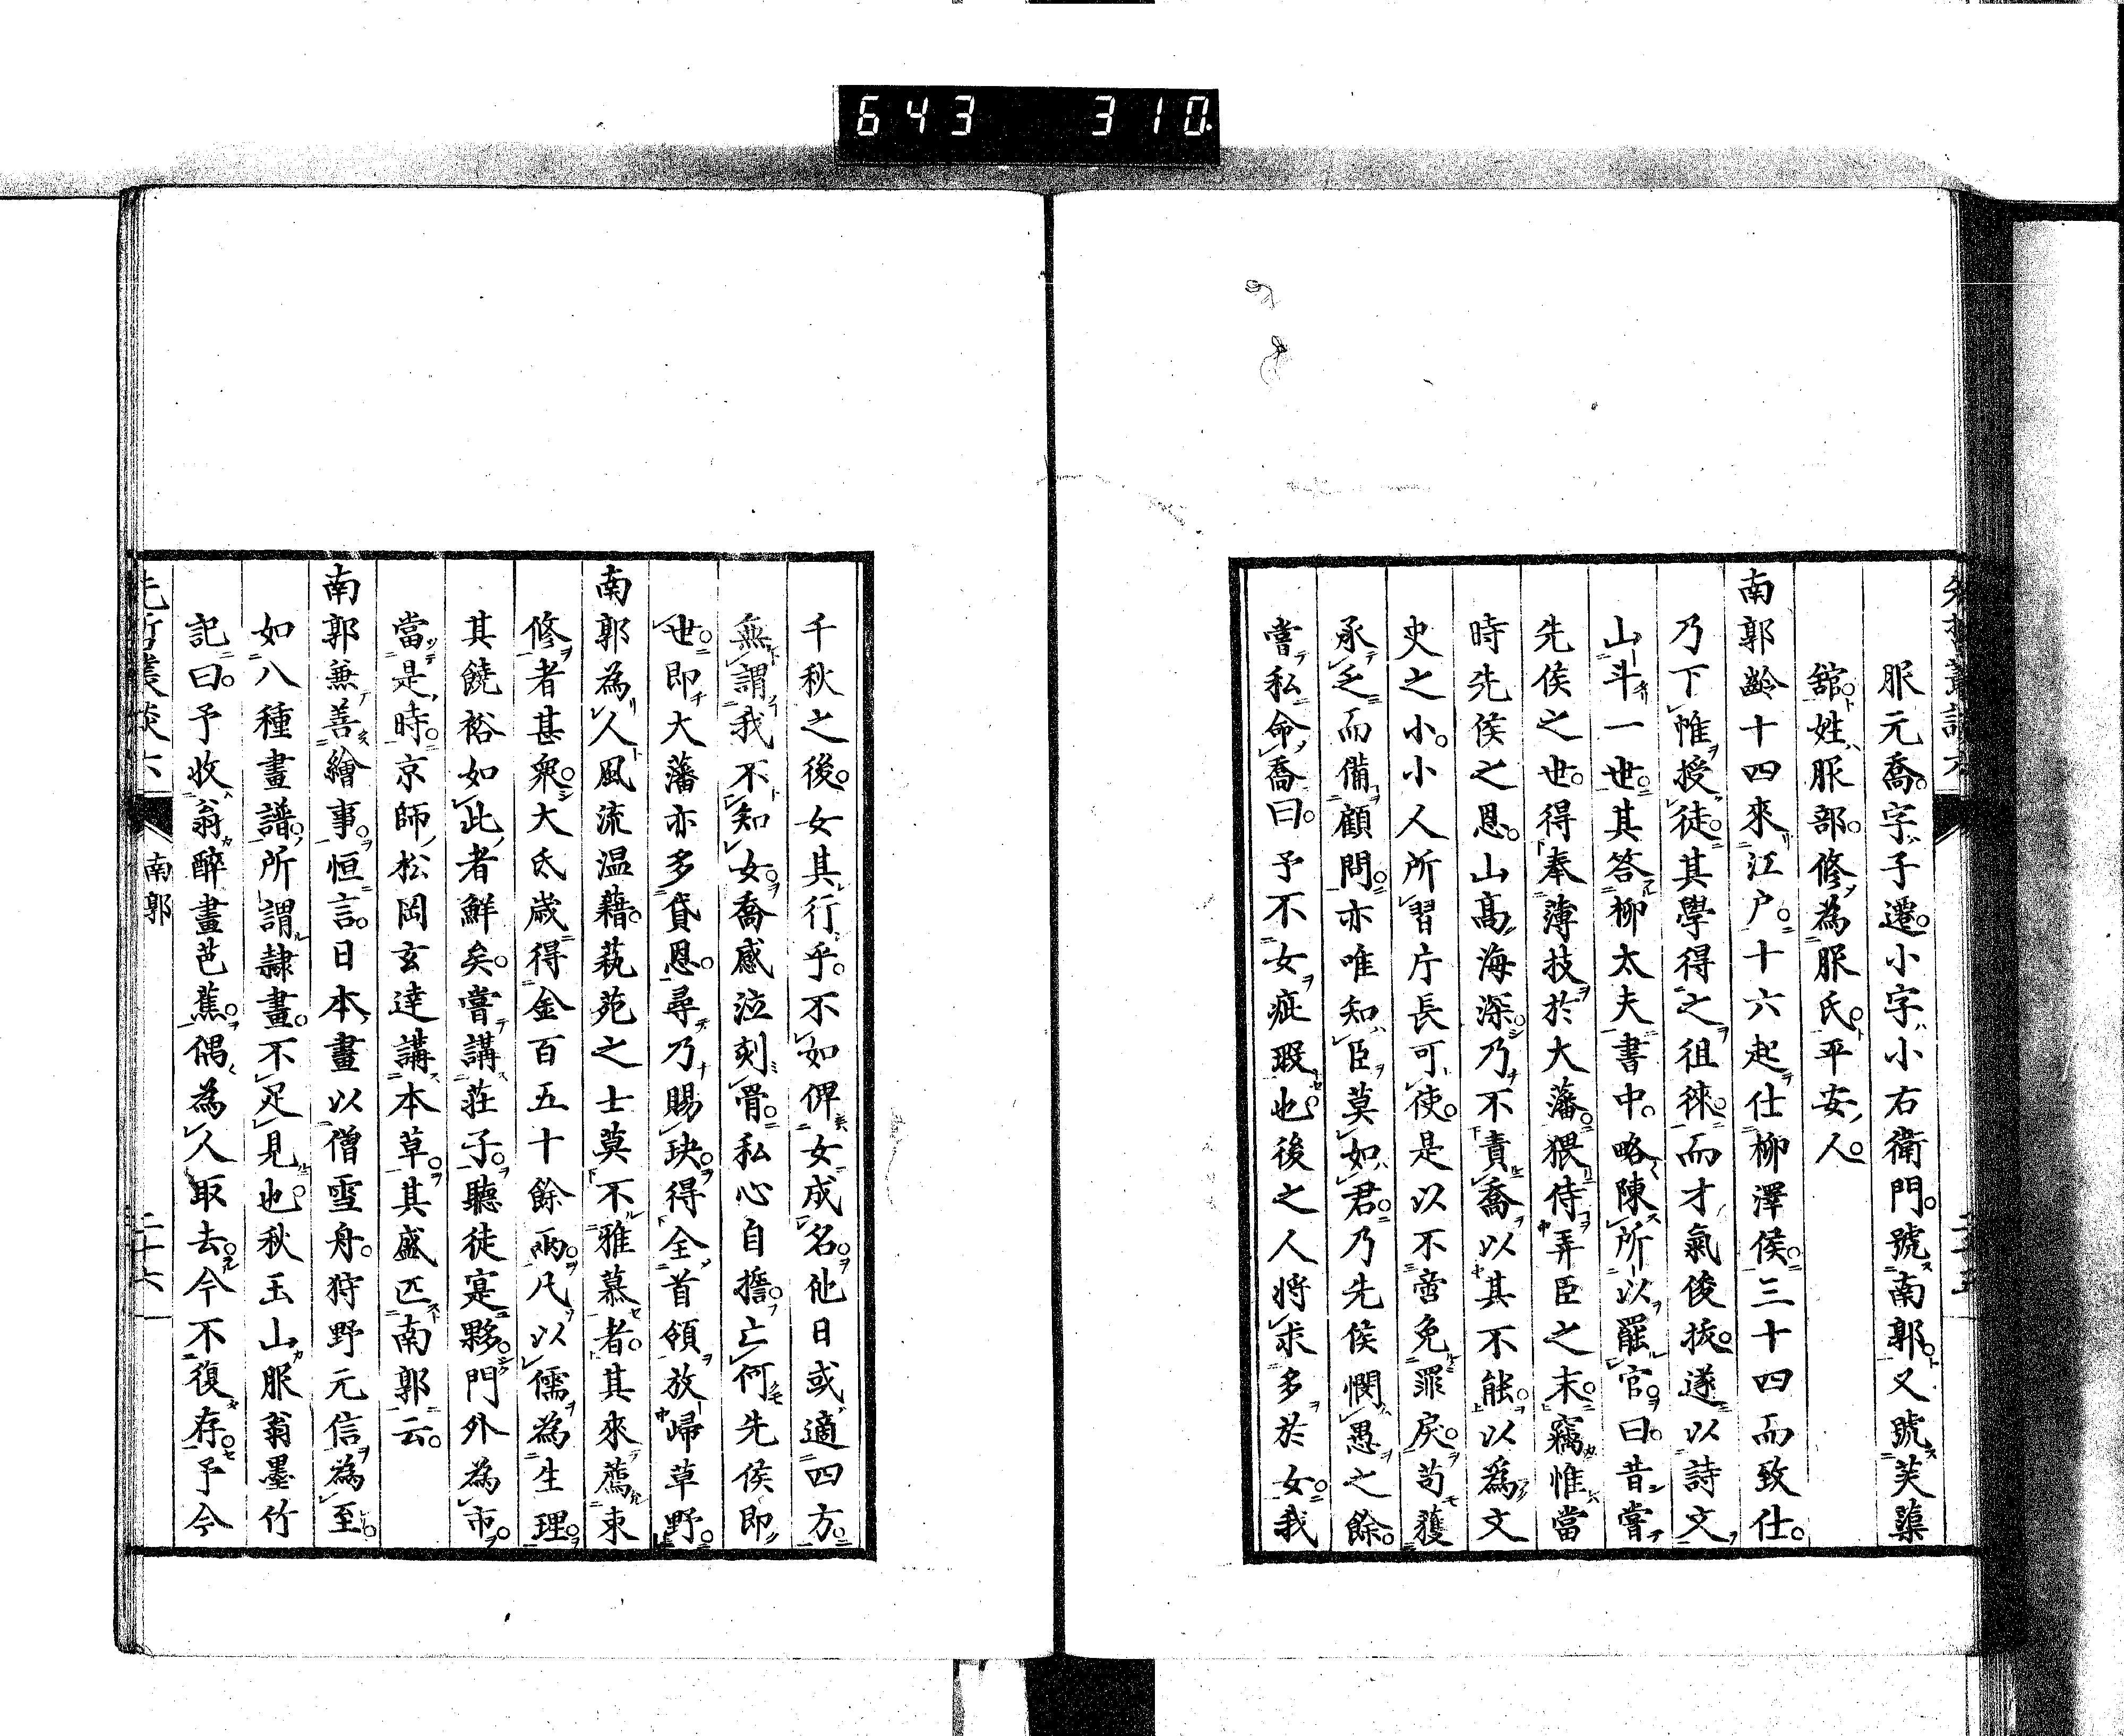 643 310
服元喬字子遷小字小右衛門號南郭又號芙蕖
舘姓服部修為服氏平安人
南郭齡十四來江户十六起仕柳澤侯三十四而致仕
乃下帷授徒其學得之徂徠而才氣俊拔遂以詩文
山斗一世其答柳太夫書中略陳所以罷官曰昔嘗
先侯之世得奉薄技於大藩猥侍弄臣之末竊惟當
時先侯之恩山高海深乃不責喬以其不能以爲文
史之小小人所習片長可使是以不啻免罪戾苟獲
承乏而備顧問亦唯知臣莫如君乃先侯憫愚之餘
嘗私命喬曰予不女疵瑕也後之人將求多於女我
千秋之後女其行乎不如俾女成名他日或適四方
無謂我不知女喬感泣刻骨私心自擔亡何先侯即
世即大藩亦多貸恩尋乃賜玦得全首領放歸草野
南郭為人風流温藉蓺苑之士莫不雅慕者其來薦束
修者甚衆大氐歲得金百五十餘兩凡以儒為生理
其饒裕如此者鮮矣嘗講莊子聽徒寔夥門外為市
當是時京師松岡玄達講本草其盛匹南郭云
南郭兼善繪事恒言日本畫以僧雪舟狩野元信為至
如八種畫譜所謂隷畫不足見也秋玉山服翁墨竹
記曰予收翁醉畫芭蕉偶為人取去今不復存予今
先哲叢談六 南郭 二十六